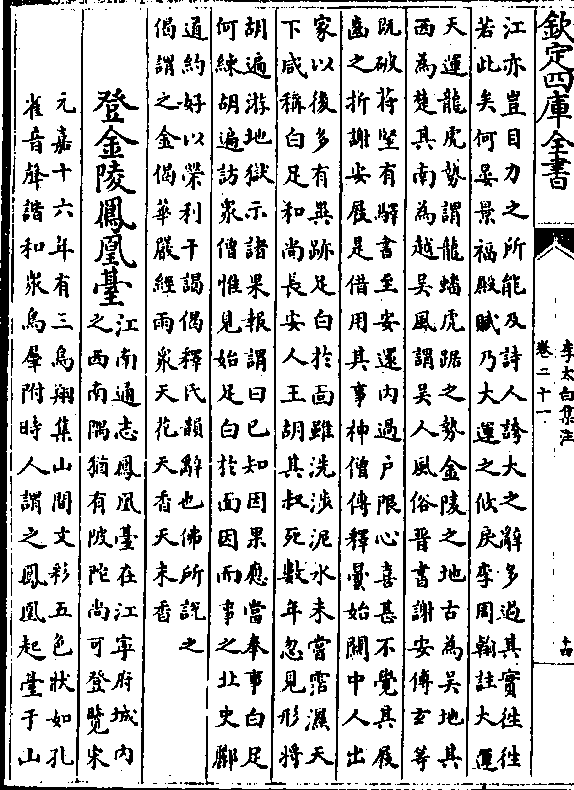 欽定四庫全書
李太白集注
卷二十一
十四
江亦豈目力之所能及詩人誇大之辭多過其實往往
若此矣何晏景福殿賦乃大運之攸戾李周翰註大運
天運龍虎勢謂龍蟠虎踞之勢金陵之地古為吳地其
西為楚其南為越吳風謂吳人風俗晉書謝安傳玄等
既破苻堅有驛書至安還內過戶限心喜甚不覺其屐
齒之折謝安屐是借用其事神僧傳釋曇始關中人出
家以後多有異跡足白於面雖洗涉泥水未嘗霑濕天
下咸稱白足和尚長安人王胡其叔死數年忽見形將
胡遍游地獄示諸果報謂曰已知因果應當奉事白足
何練胡遍訪衆僧惟見始足白於面因而事之北史酈
道約好以榮利干謁偈釋氏韻辭也佛所說之
偈謂之金偈華嚴經雨衆天花天香天末香
登金陵鳳凰臺
江南通志鳳凰臺在江寧府城內
之西南隅猶有陂陀尚可登覽宋
元嘉十六年有三鳥翔集山間文彩五色狀如孔
雀音聲諧和衆鳥羣附時人謂之鳳凰起臺于山